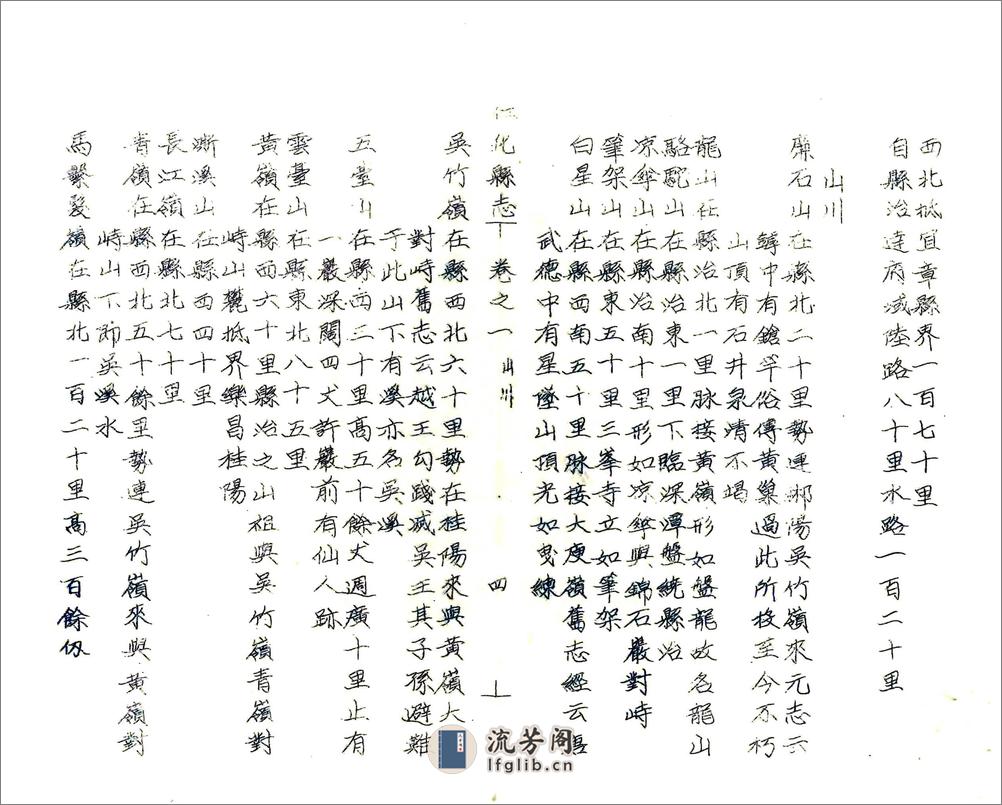 西北抵宜章縣界一百七十里
自縣治達府城陸路八十里水路一百二十里
山川
廩石山在縣北二十里勢連郴陽吳竹嶺來元志云
罅中有鎗竿俗傳黃巢過此所投至今不朽
山頂有石井泉清不竭
龍山在縣治北一里脉接黃嶺形如盤龍故名龍山
駱駝山在縣治東一里下臨深潭盤繞縣治
凉傘山在縣治南十里形如凉傘與錦石巖對峙
筆架山在縣東五十里三峯寺立如筆架
白星山在縣西南五十里脉接大庾嶺舊志經云唐
武德中有星墜山頂光如曳練
化縣志
卷之一
山川
四
吳竹嶺在縣西北六十里勢在桂陽來與黃嶺大
對峙舊志云越王勾踐滅吳王其子孫避難
于此山下有溪亦名吳溪
五臺山在縣西三十里高五十餘丈週廣十里止有
一巖深闊四丈許巖前有仙人跡
雲臺山在縣東北八十五里
黃嶺在縣西六十里縣治之山祖與吳竹嶺青嶺對
峙山麓抵界樂昌桂陽
漸溪山在縣西四十里
長江嶺在縣北七十里
青嶺在縣西北五十餘里勢連吳竹嶺來與黃嶺對
峙山下即吳溪水
馬鬃髮嶺在縣北一百二十里高三百餘仭
流芳阁
lfglib.cn